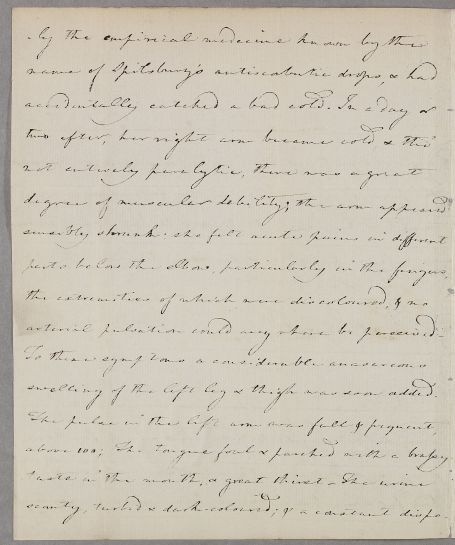 -ly the empirical medicine known by the
name of Spilsbury's antiscorbutic drops, & had
accidentally catched a bad cold. In a day or
two after, her right arm became cold & tho'
not entirely paralytic, there was a great
degree of muscular debility; the arm appeared
sensibly shrunk: she felt acute pains in different
parts below the elbow, particularly in the fingers,
the extremities of which were discoloured, & no
arterial pulsation could any where be perceived.
To these symptoms a considerable anasarcous
swelling of the left leg & thigh was soon added.
The pulse in the left arm was full & frequent,
above 100; The tongue foul & parched with a brassy
taste in the mouth, & great thirst - The urine
scanty, turbid & dark-coloured; & a constant dispo-